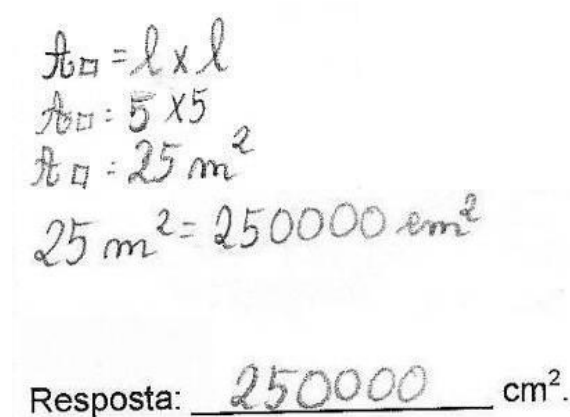 A□ = l x l
A□ = 5 x 5
A□ = 25 m²
25 m² = 250000 cm²
Resposta: 250000 cm².